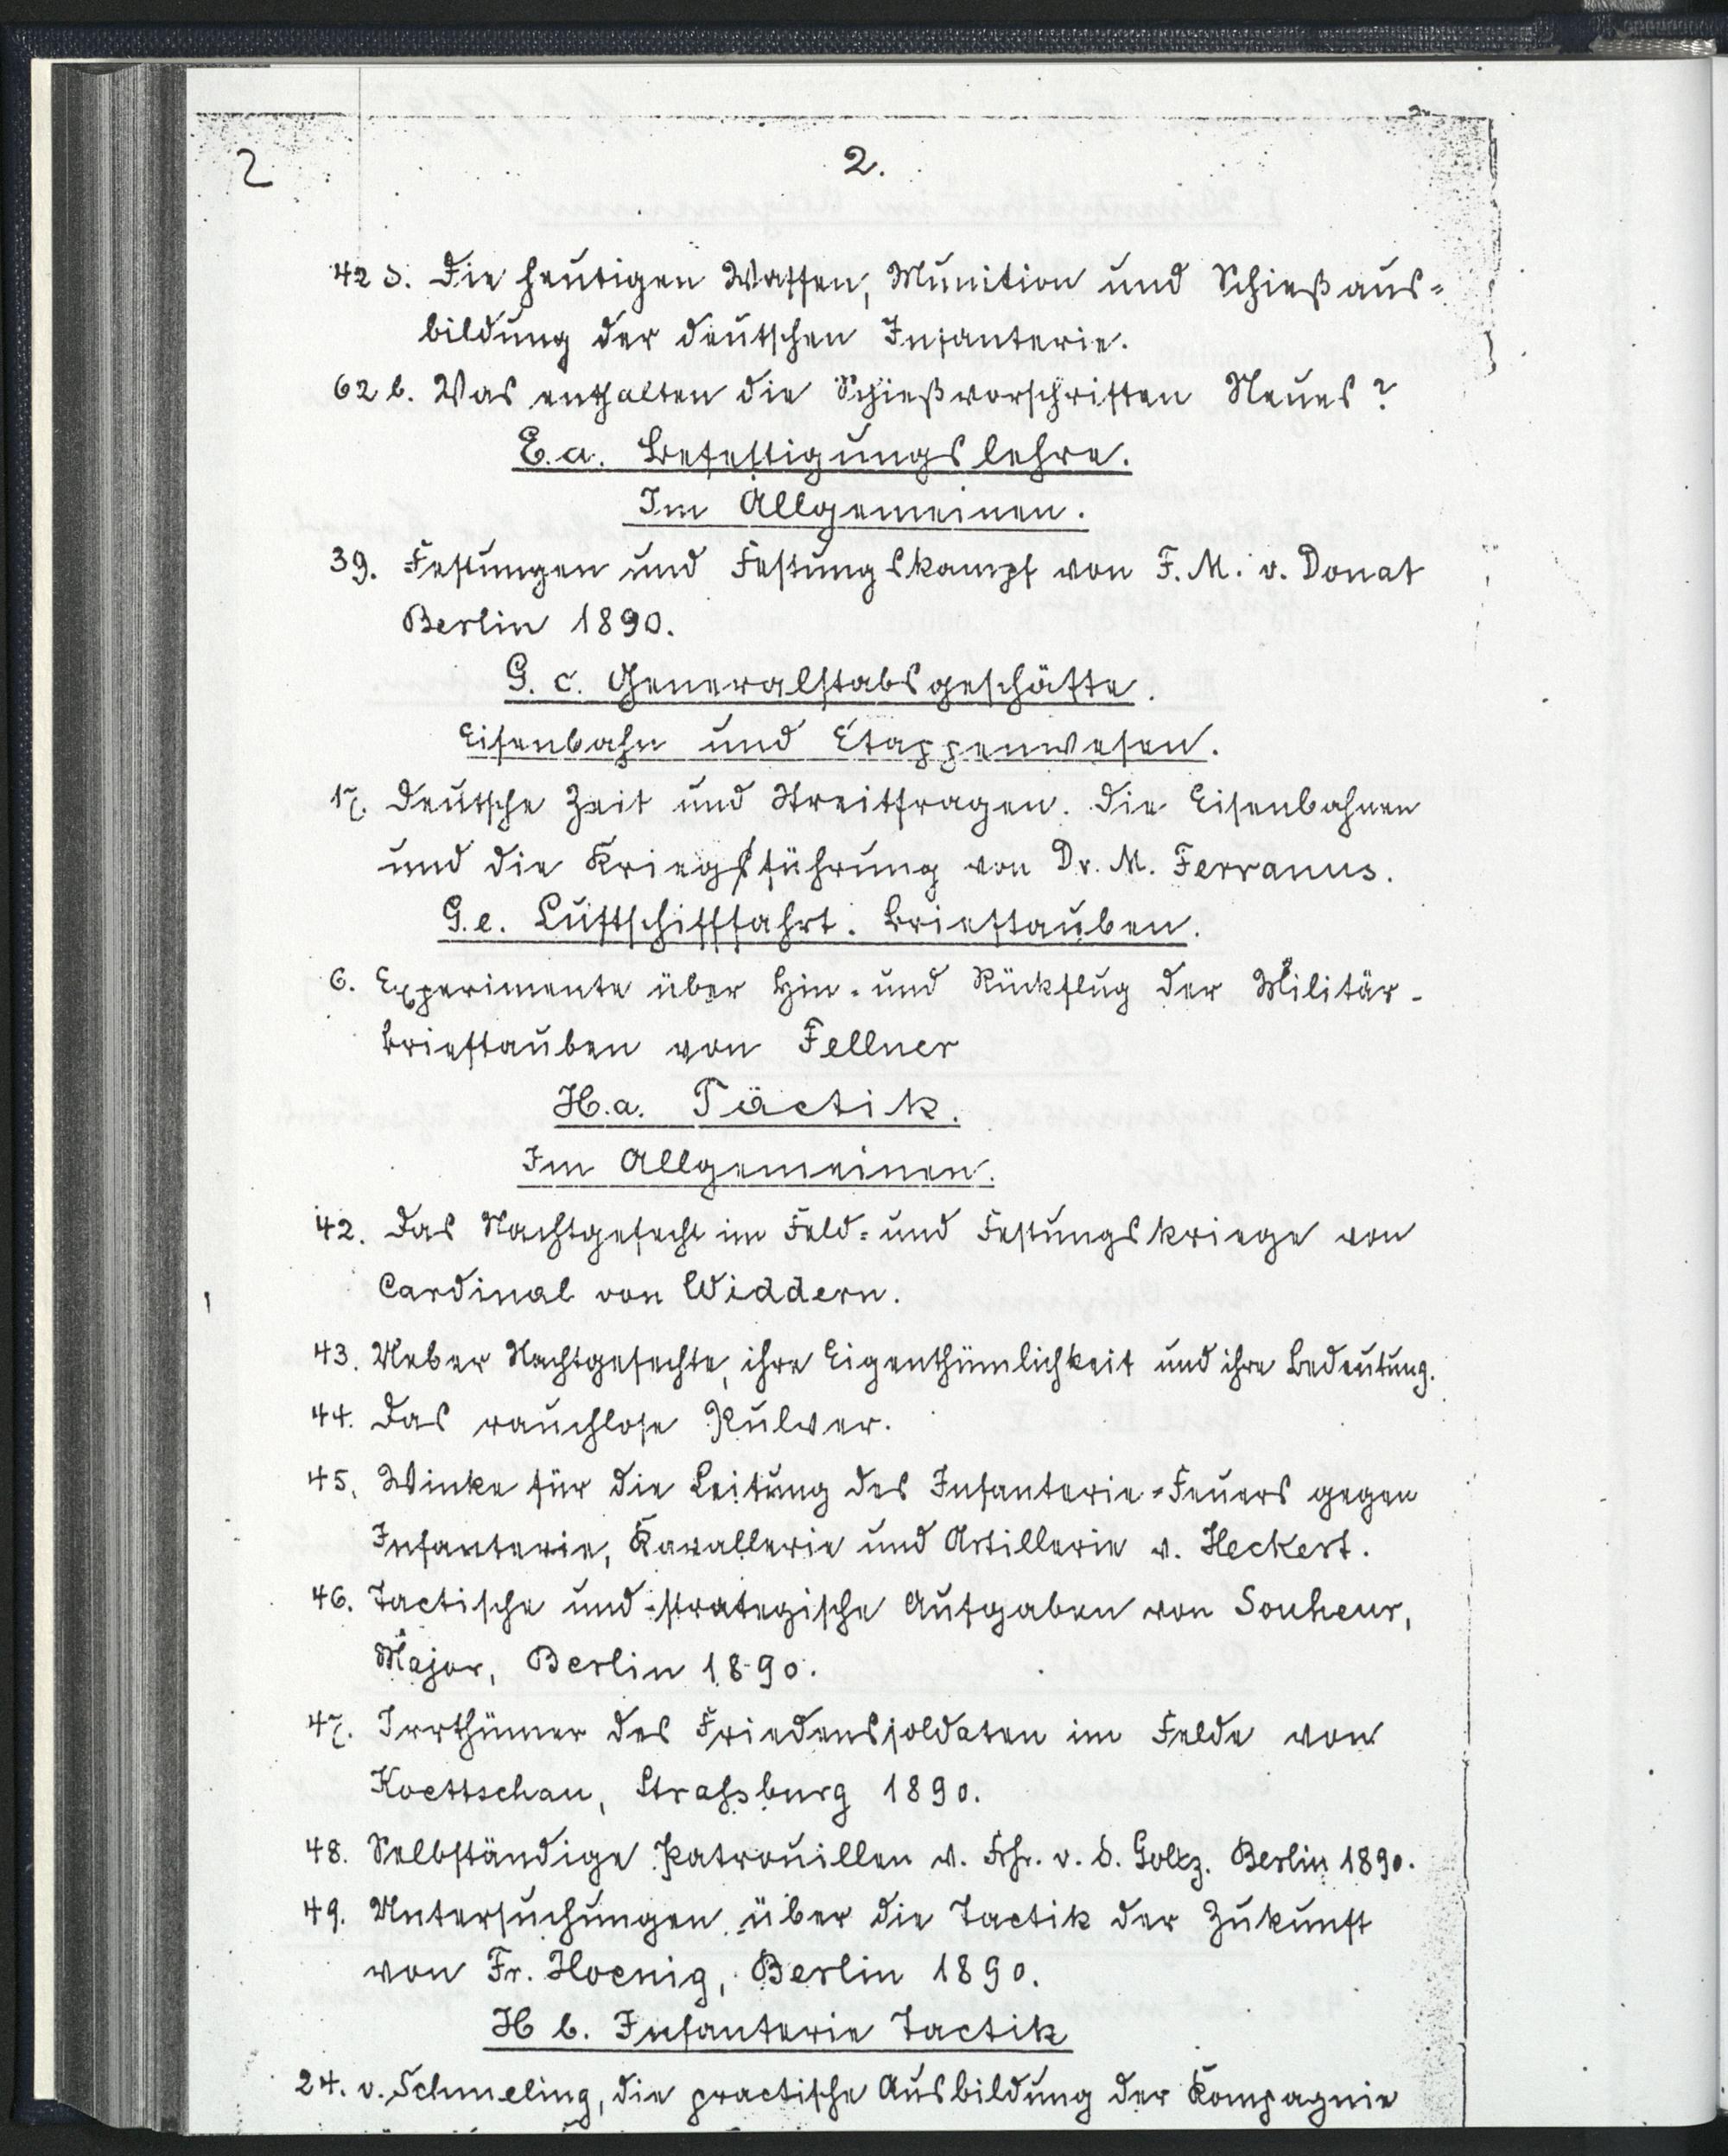 2
2.
42 d. Die heutigen Waffen, Munition und Schießaus=
bildung der deutschen Infanterie.
62 b. Was enthalten die Schießvorschriften Neues?
E. a. Befestigungslehre.
Im Allgemeinen.
39. Festungen und Festungskampf von F. M. v. Donat
Berlin 1890.
G. c. Generalstabsgeschäfte.
Eisenbahn und Etappenwesen.
17. Deutsche Zeit und Streitfragen. Die Eisenbahnen
und die Kriegsführung von Dr. M. Ferranus.
G. e. Luftschifffahrt. Brieftauben.
6. Experimente über Hin- und Rückflug der Militär-
brieftauben von Fellner
H. a. Tactik.
Im Allgemeinen.
42. Das Nachtgefecht im Feld= und Festungskriege von
Cardinal von Widdern.
43. Ueber Nachtgefechte, ihre Eigenthümlichkeit und ihre Bedeutung.
44. Das rauchlose Pulver.
45. Winke für die Leitung des Infanterie=Feuers gegen
Infanterie, Kavallerie und Artillerie v. Heckert.
46. Tactische und strategische Aufgaben von Souheur,
Major, Berlin 1890.
47. Irrthümer des Friedenssoldaten im Felde von
Koettschau, Strassburg 1890.
48. Selbständige Patrouillen v. Frh. v. d. Goltz. Berlin 1890.
49. Untersuchungen über die Tactik der Zukunft
von Fr. Hoenig, Berlin 1890.
H b. Infanterie Tactik
24. v. Schmeling, die practische Ausbildung der Kompagnie